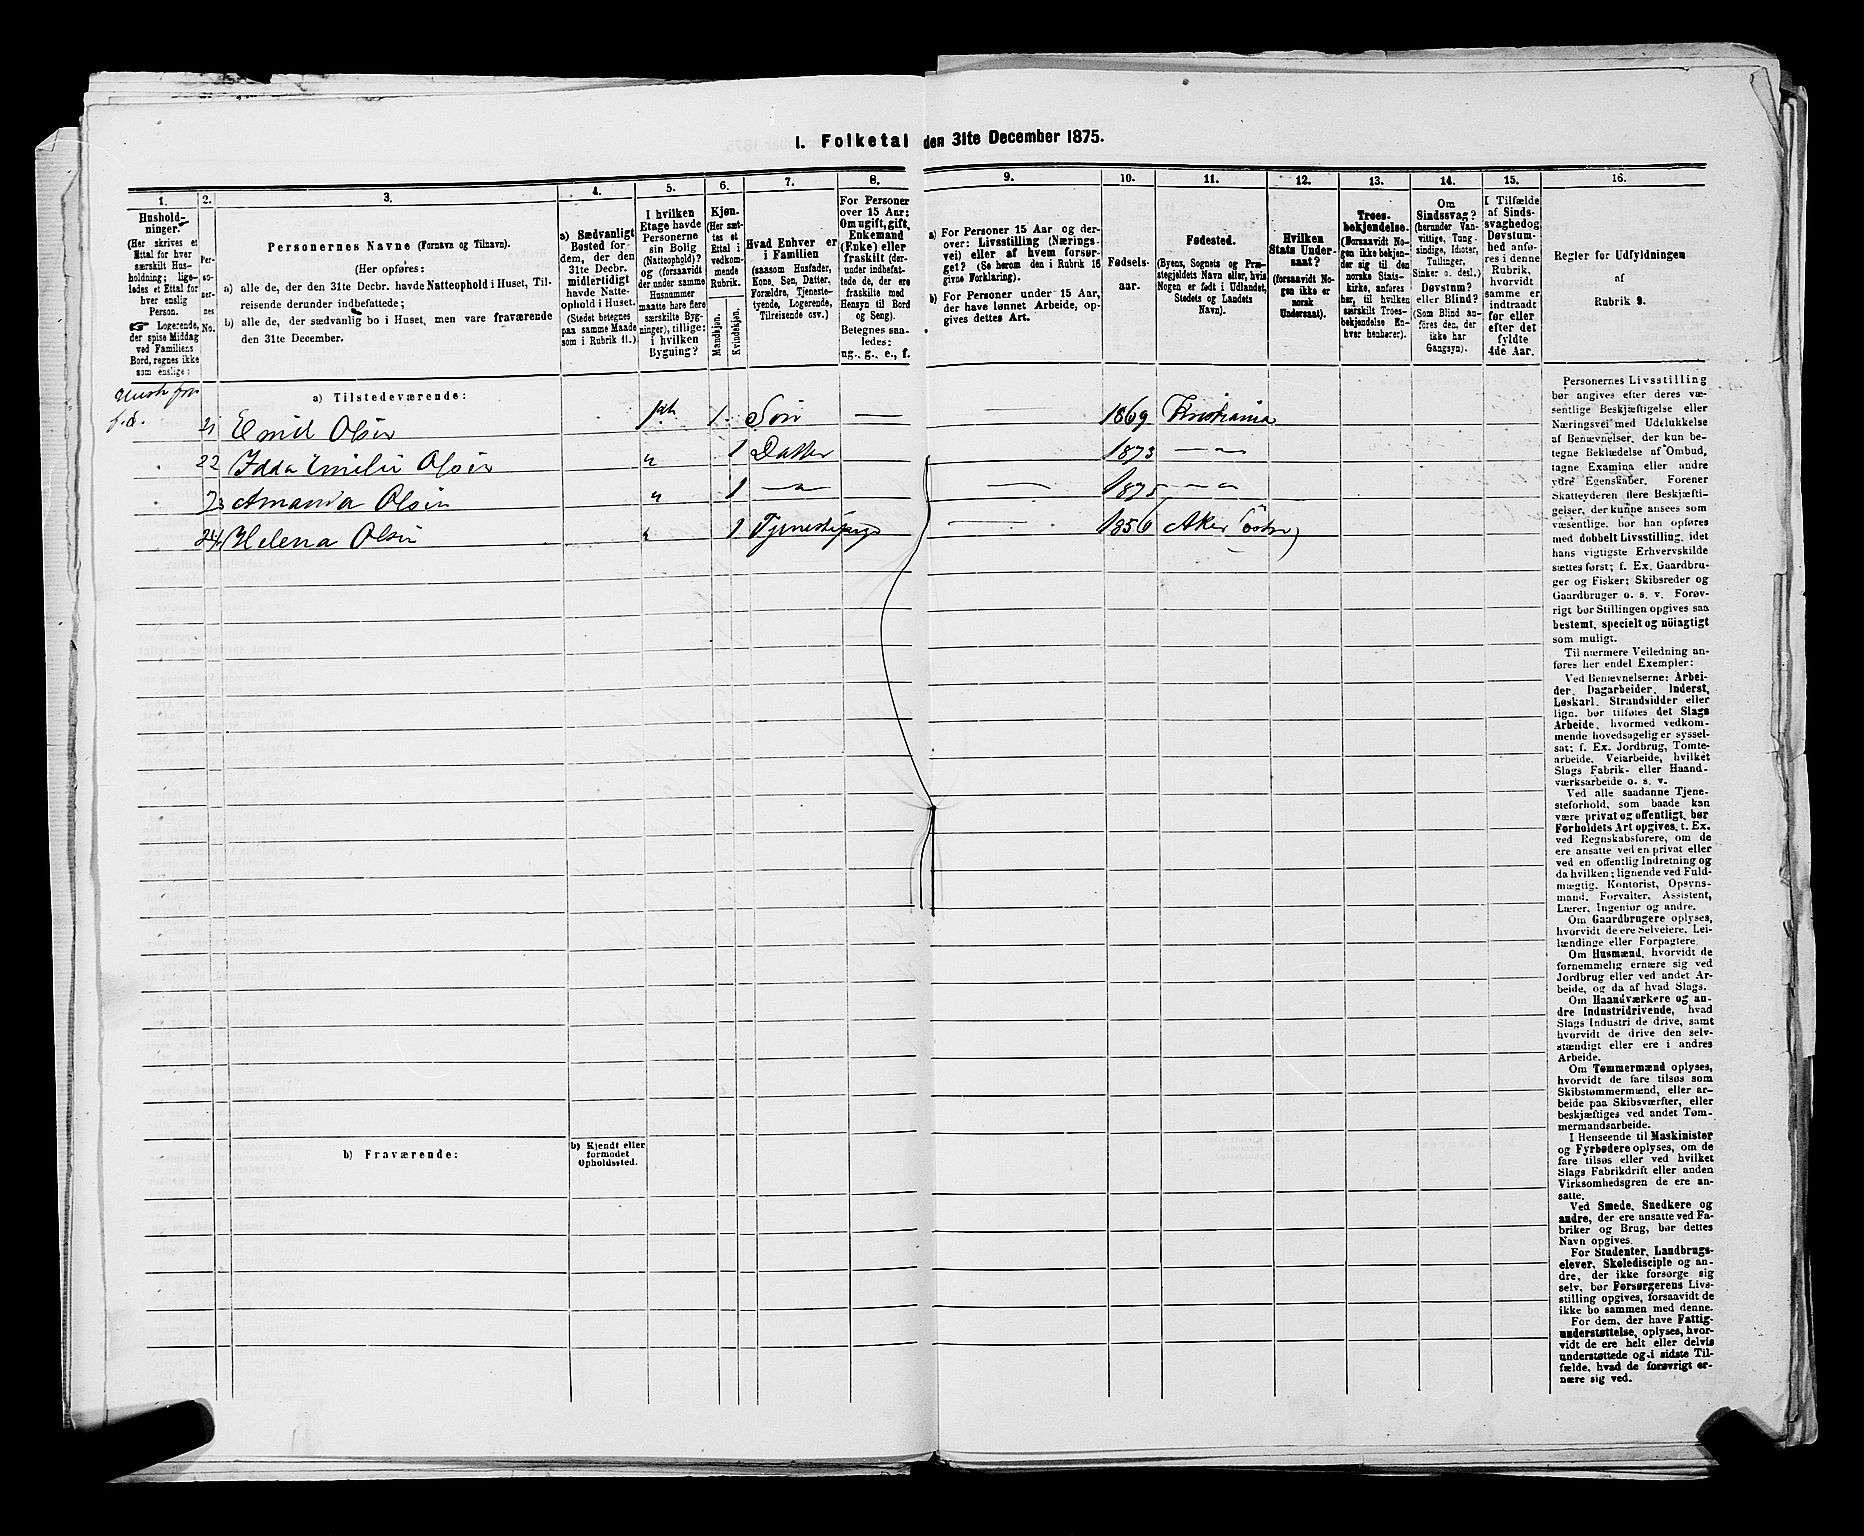 I. Folketal den 31te December 1875.
1. 2. 3. 4. 5. 6. 7. 8. 9. 10. 11. 12. 13. 14. 15. 16.
Hushold-
ninger.
(Her skrives et
Ettal for hver
særskilt Hus-
holdning; lige-
ledes et Ettal for
hver enslig
Person.
☞ Logerende,
der spise Middag
ved Familiens
Bord, regnes ikke
som enslige;
Per-
so-
ner-
nes
No.
Personernes Navne (Fornavn og Tilnavn).
(Her opføres:
a) alle de, der den 31te Decbr. havde Natteophold i Huset, Til-
reisende derunder indbefattede;
b) alle de, der sædvanlig bo i Huset, men vare fraværende
den 31te December.
a) Sædvanligt
Bosted for
dem, der den
31te Decbr.
midlertidigt
havde Natte-
ophold i Huset.
(Stedet betegnes
paa samme Maade
som i Rubrik 11.)
I hvilken
Etage havde
Personerne
sin Bolig
(Natteophold)?
og (forsaavidt
der under samme
Husnummer
maatte høre flere
særskilte Byg-
ninger), tillige:
i hvilken
Bygning?
Kjøn.
(Her sæt-
tes et
Ettal i
vedkom-
mende
Rubrik.
Mandkjøn.
Kvindekjøn.
Hvad Enhver er
i Familien
(saasom Husfader,
Kone, Søn, Datter,
Forældre, Tjeneste-
tyende, Logerende,
Tilreisende osv.)
For Personer
over 15 Aar:
Om ugift, gift,
Enkemand
(Enke) eller
fraskilt (der-
under indbefat-
tede de, der ere
fraskilte med
Hensyn til Bord
og Seng).
Betegnes saa-
ledes:
ug., g., e., f.
a) For Personer 15 Aar og der-
over: Livsstilling (Nærings-
vei) eller af hvem forsør-
get? (Se herom den i Rubrik 16
givne Forklaring).
b) For Personer under 15 Aar,
der have lønnet Arbeide, op-
gives dettes Art.
Fødsels-
aar.
Fødested.
(Byens, Sognets og Præ-
stegjeldets Navn eller, hvis
Nogen er født i Udlandet,
Stedets og Landets
Navn).
Hvilken
Stats Under-
saat?
(forsaavidt No-
gen ikke er
norsk
Undersaat).
Troes-
bekjendelse.
(Forsaavidt No-
gen ikke bekjen-
der sig til den
norske Stats-
kirke, anføres
her, til hvilken
særskilt Troes-
bekjendelse En-
hver henhører).
Om
Sindssvag?
(herunder Van-
vittige, Tung-
sindige, Idioter,
Tullinger,
Sinker o. desl.)
Døvstum?
eller Blind?
(Som Blind an-
føres den, der
ikke har
Gangsyn).
I Tilfælde
af Sinds-
svaghed og
Døvstum-
hed anfø-
res i denne
Rubrik,
hvorvidt
samme er
indtraadt
før eller
efter det
fyldte
4de Aar.
Regler for Udfyldningen
af
Rubrik 9.
a) Tilstedeværende:
21 Emil Olsen 1 Søn — — 1869 Kristiania
22 Idda Emilie Olsen " 1 Datter 1873 — " —
23 Amanda Olsen " 1 — " — — 1875 — " —
24 Helena Olsen " 1 — 1856 Aker
b) Fraværende:
b) Kjendt eller
formodet
Opholdssted.
Personernes Livsstilling
bør angives efter deres væ-
sentlige Beskjæftigelse eller
Næringsvei med Udelukkelse
af Benævnelser, der kun be-
tegne Beklædelse af Ombud,
tagne Examina eller andre
ydre Egenskaber. Forener
Skatteyderen flere Beskjæfti-
gelser, der kunne ansees som
væsentlige, bør han opføres
med dobbelt Livsstilling, idet
hans vigtigste Erhvervskilde
sættes først; f. Ex. Gaardbru-
ger og Fisker; Skibsreder og
Gaardbruger o. s. v. Forøv-
rigt bør Stillingen opgives saa
bestemt, specielt og nöiagtigt
som muligt.
Til nærmere Veiledning an-
føres her endel Exempler:
Ved Benævnelserne: Arbei-
der, Dagarbeider, Inderst,
Løskarl, Strandsidder eller
lign. bør tilføies det Slags
Arbeide, hvormed vedkom-
mende hovedsagelig er syssel-
sat; f. Ex. Jordbrug, Tomte-
arbeide, Veiarbeide, hvilket
Slags Fabrik- eller Haand-
værksarbeide o. s. v.
Ved alle saadanne Tjene-
steforhold, som baade kan
være privat og offentligt, bør
Forholdets Art opgives, t. Ex.
ved Regnskabsførere, om de
ere ansatte ved en privat eller
ved en offentlig Indretning og
da hvilken; lignende ved Fuld-
mægtig, Kontorist, Opsyns-
mand, Forvalter, Assistent,
Lærer, Ingeniør og andre.
Om Gaardbrugere oplyses,
hvorvidt de ere Selveiere, Lei-
lændinge eller Forpagtere.
Om Husmænd, hvorvidt de
fornemmelig ernære sig ved
Jordbrug eller ved andet Ar-
beide, og da af hvad Slags.
Om Haandværkere og an-
dre Industridrivende, hvad
Slags Industri de drive, samt
hvorvidt de drive den selv-
stændigt eller ere i andres
Arbeide.
Om Tømmermænd oplyses,
hvorvidt de fare tilsøs som
Skibstømmermænd, eller ar-
beide paa Skibsværfter, eller
beskjæftiges ved andet Tøm-
mermandsarbeide.
I Henseende til Maskinister
og Fyrbødere oplyses, om de
fare tilsøs eller ved hvilket
Slags Fabrikdrift eller anden
Virksomhedsgren de ere an-
satte.
Ved Smede, Snedkere og
andre, der ere ansatte ved Fa-
briker og Brug, bør dettes
Navn opgives.
For Studenter, Landbrugs-
elever, Skoledisciple og an-
dre, der ikke forsørge sig
selv, bør Forsørgerens Livs-
stilling opgives, forsaavidt de
ikke bo sammen med denne.
For dem, der have Fattig-
understøttelse, oplyses, hvor-
vidt de ere helt eller delvis
understøttede og i sidste Til-
fælde, hvad de forøvrigt er-
nære sig ved.